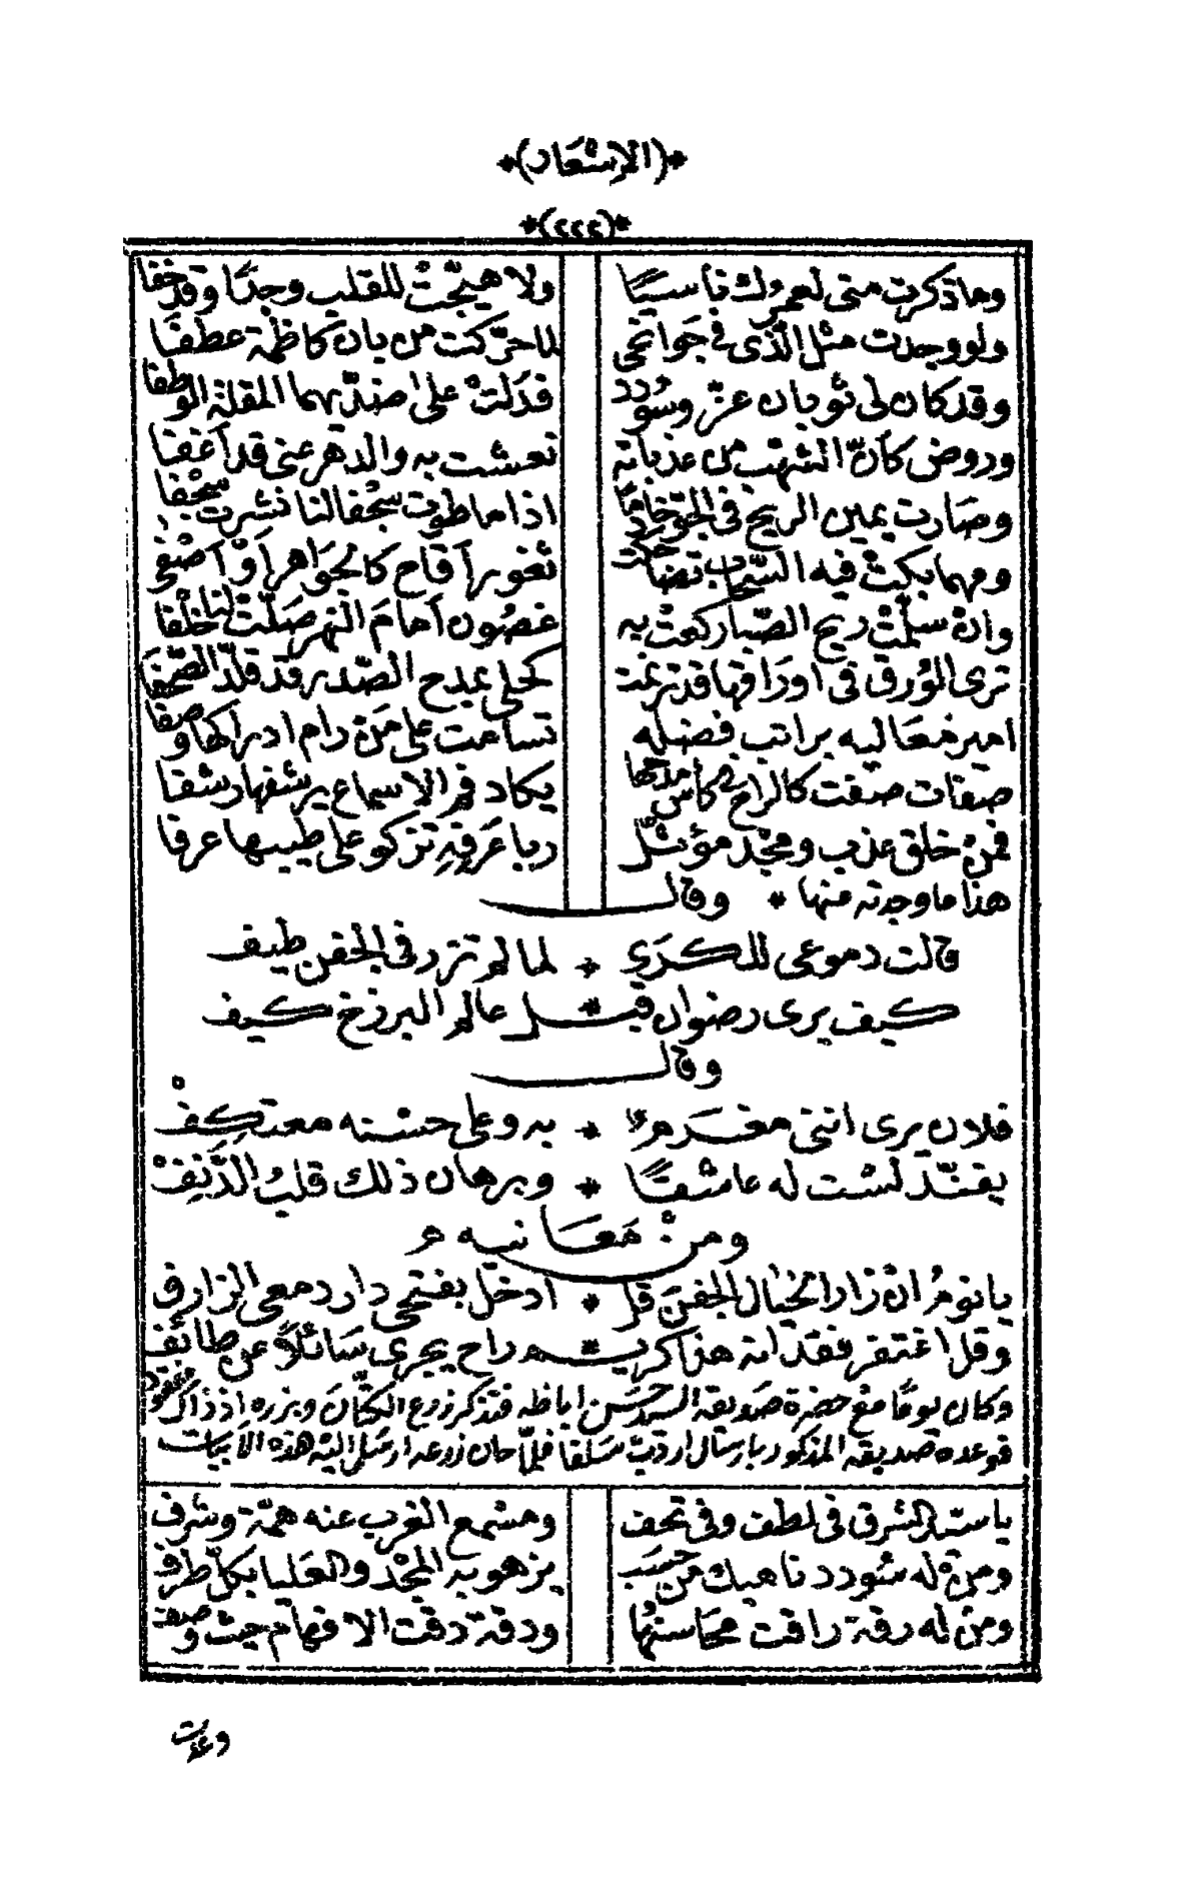 *(الإسْعَاد)*
*(٢٢٢)*
وما ذكرت متى لعمرُك ناسيًا ولا هيّجتْ للقلب وجدًا وقد خفا
ولو وجدت مثل الّذى فى جَوانحى لما حرّكت من بان كاظمة عطفَا
وقد كان لى ثوبان عزّ وسُودد فدَلتْ على اضدّيهما المقلة الوطفا
وروض كأنّ الشهْب من عذباته نعشت به والدهر عنى قد أغفا
وصَارت يمين الريح فى الجوّ اذا ما طوت سجْفا لنا نشرت سجْفا
ومهما بكتْ فيه السّحاب تضاحكت ثغور أقاح كالجَواهر أوْ اصْفى
وانْ سلّمتْ ريح الصّبا ركعتْ به غصُون أمامَ النهر صَلّتْ لنا خلْفا
ترى الوُرق فى اورَاقها قد ترنمت كحلى بمدح الصّدر قد قلّد الصّحفَا
امير معَاليه براتب فضله تسامت على مَنْ رام ادراكها وصفا
صفات صفت كالراح كأس مدحها يكاد فم الاسماع يرشفها رشفا
فمنْ خلق عذب ومجْد مؤثّل ربا عَرفهِ تزكو على طيبها عرفا
هذا ما وجدته منها * وقال
قالت دموعى للكرَي * لما لم تزر فى الجفن طيف
كيف يرى رضوان قبـل * عالم البرزخ كيف
وقال
فلان يرى اننى مغرَمٌ * به وعلى حسْنه معتكِفْ
يفنّد لسْت له عاشقًا * وبرهان ذلك قلبُ الدَّنِفْ
ومنْ مَعَانيه م
يا نومُ انْ زار الخيال الجفنَ قل * ادخل بفتحى دار دمعى الزارف
وقل اغتفر فقدانه هذا كريـم * راح يجرى سَائلاً عن طائف
وكان يومًا معْ حضرة صَديقه السيد حسَن اباظه فتذكر زرع الكتّانَ وبزره إذ ذاك مفقود
فوعده صديقه المذكور بارسال اردبّ سَلفا فلمّا حان زرعه ارسَل اليْه هذه الابيات
يا سيّد الشرق فى لطف وفى تحف ومشمع الغرب عنه همّة وشرف
ومنْ له سُودد ناهيك من حسَب يزهو به المجْد والعَليا بكلّ طرف
ومنْ له رقة راقت محَاسنهُا ودقة دقت الافهام حيث وصف